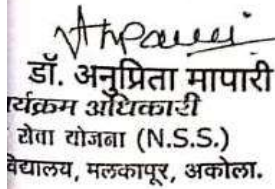 डॉ. अनुप्रिता मापारी
र्यक्रम अधिकारी
सेवा योजना (N.S.S.)
विद्यालय, मलकापूर, अकोला.